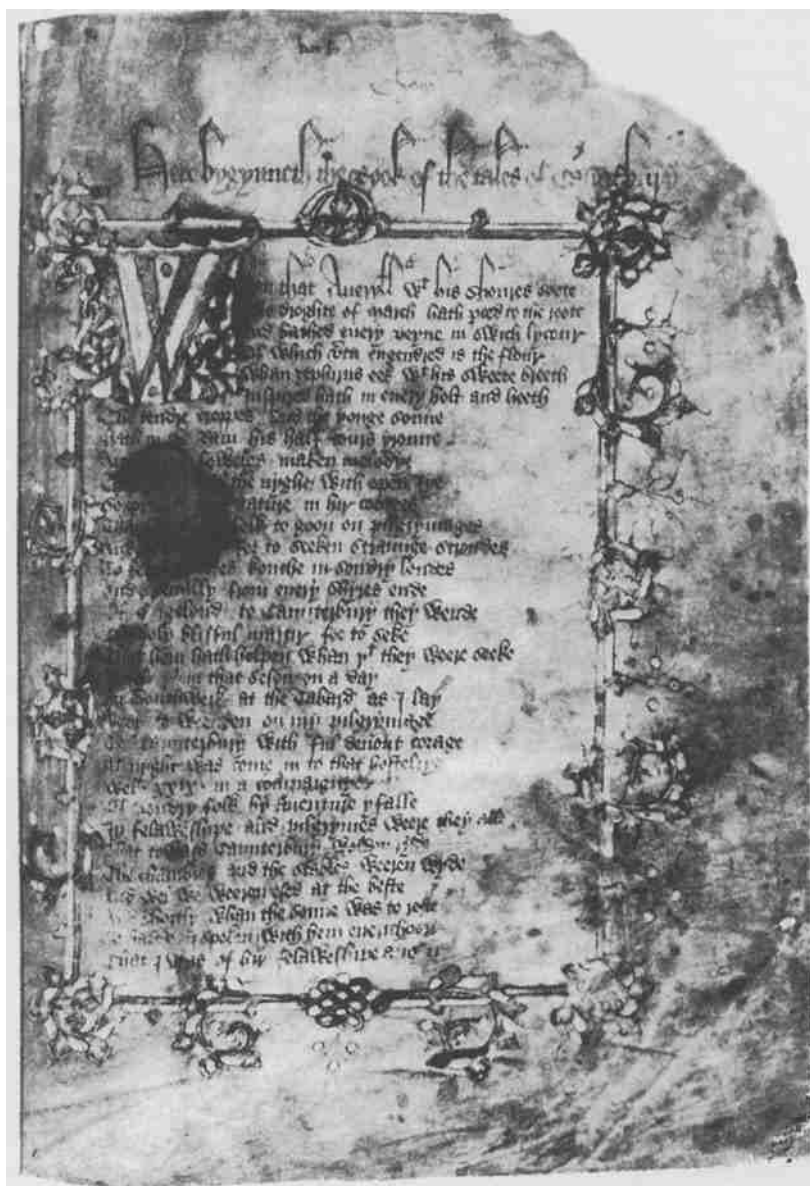 Here bygynneth the Book of the tales of
W that Aueryll wt his shoures soote
droghte of March hath perced to the roote
And bathed euery veyne in swich lycour
Of which vertu engendred is the flour
Whan zephirus eek wt his sweete breeth
Inspired hath in euery holt and heeth
The tendre croppes and the yonge sonne
Hath in the Ram his half cours yronne
foweles maken melodye
the nyght with open Iye
nature in hir corages
folk to goon on pilgrymages
for to seeken straunge strondes
To kouthe in sondry londes
And specially from euery shyres ende
Of Engelond to Caunterbury they wende
The holy blisful martir for to seke
That hem hath holpen whan þt they weere seeke
in that seson on a day
In Southwerk at the Tabard as I lay
Redy to weenden on my pilgrymage
To Caunterbury with ful deuout corage
At nyght was come in to that hostelrye
Wel xxix in a compaignye
Of sondry folk by auenture yfalle
In felaweshipe and pilgrymes weere they alle
That toward Caunterbury wolden ryde
The chambres and the stables weeren wyde
And wel we weeren esed at the beste
And shortly whan the sonne was to reste
hadde I spoken with hem euerychoon
That I was of hir felaweshipe anoon